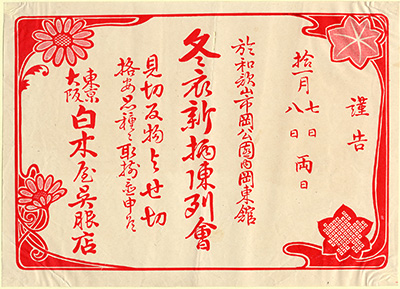 謹告
拾一月 七日 八日 両日
於和歌山市岡公園内岡東館
冬衣新柄陳列會
見切反物与せ切
格安品種々取揃置申候
東京 大阪 白木屋呉服店